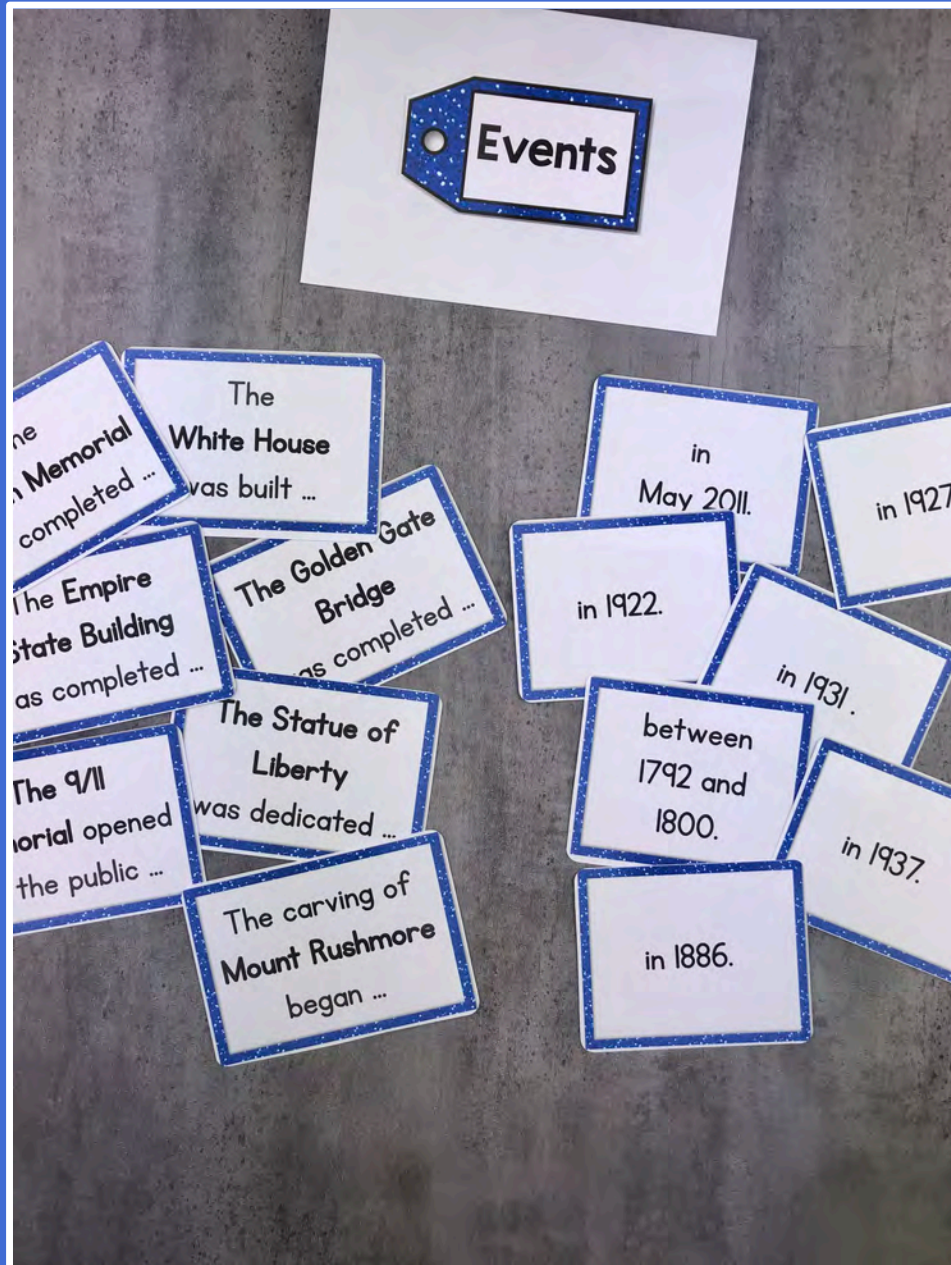 Events
Memorial
completed ...
The
White House
was built ...
The Golden Gate
Bridge
as completed ...
The Empire
State Building
as completed ...
The Statue of
Liberty
was dedicated ...
The 9/11
orial opened
the public ...
The carving of
Mount Rushmore
began ...
in
May 2011.
in 1927
in 1922.
in 1931.
between
1792 and
1800.
in 1937.
in 1886.